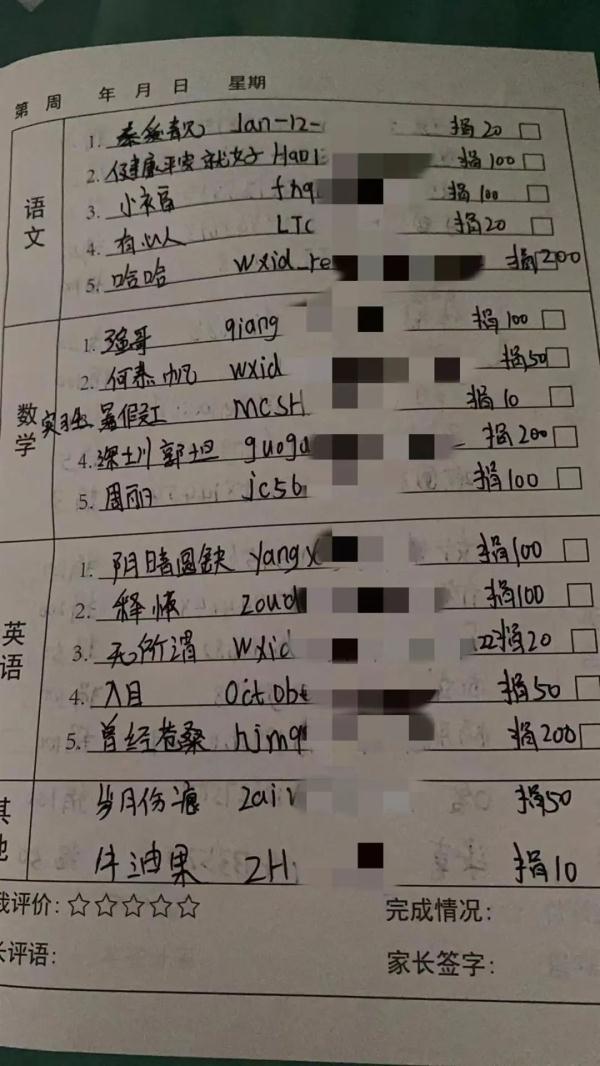 第 周 年 月 日 星期
语文
1. Jan-12- 捐20
2. 健康平安就好 HaoL 捐100
3. 小幸福 fng 捐100
4. 有心人 LTC 捐20
5. 哈哈 wxid_re 捐200
数学
1. 强哥 qiang 捐100
2. 何恭帆 wxid 捐50
暑假工 MCSH 捐10
4. 深土川郭坦 guogu 捐200
5. 周丽 jc56 捐100
英语
1. 阴晴圆缺 yangx 捐100
2. 释怀 zoud 捐100
3. 无所谓 wxid 22捐20
4. 入目 Octobe 捐50
5. 曾经苍桑 hjmq 捐200
其他
岁月伤痕 zai 捐50
牛油果 ZH 捐10
我评价: ☆☆☆☆☆ 完成情况:
长评语: 家长签字: